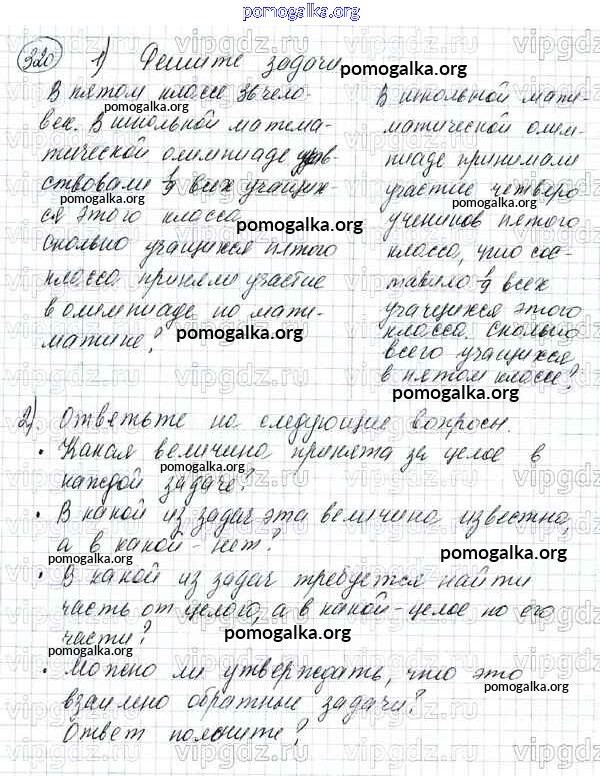 pomogalka.org
320 1) Решите задачи
pomogalka.org
В пятом классе 36 чело-
век. В школьной матема-
тической олимпиаде учав-
ствовали 1/9 всех учащих-
ся этого класса.
Сколько учащихся пятого
класса приняли участие
в олимпиаде по мате-
матике?
pomogalka.org
pomogalka.org
pomogalka.org
pomogalka.org
В школьной мате-
матической олим-
пиаде принимали
участие четверо
учеников пятого
класса, что сос-
тавило 1/9 всех
учащихся этого
класса. Сколько
всего учащихся
в пятом классе?
pomogalka.org
pomogalka.org
pomogalka.org
pomogalka.org
2). Ответьте на следующие вопросы.
• Какая величина принята за целое в
каждой задаче?
pomogalka.org
• В какой из задач эта величина известна,
а в какой - нет?
pomogalka.org
• В какой из задач требуется найти
часть от целого, а в какой - целое по его
части?
pomogalka.org
• Можно ли утверждать, что это
взаимно обратные задачи?
pomogalka.org
Ответ поясните?
vipgdz.ru